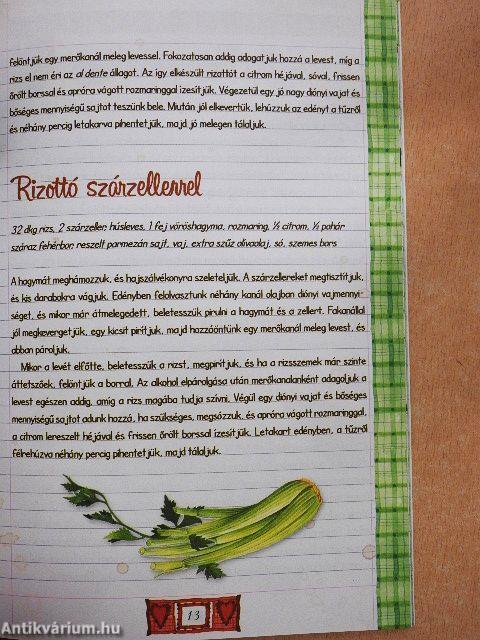 felöntjük egy merőkanál meleg levessel. Fokozatosan addig adogatjuk hozzá a levest, míg a
rizs el nem éri az al dente állagot. Az így elkészült rizottót a citrom héjával, sóval, frissen
őrölt borssal és apróra vágott rozmaringgal ízesítjük. Végezetül egy jó nagy diónyi vajat és
bőséges mennyiségű sajtot teszünk bele. Miután jól elkevertük, lehúzzuk az edényt a tűzről
és néhány percig letakarva pihentetjük, majd jó melegen tálaljuk.
Rizottó szárzellerrel
32 dkg rizs, 2 szárzeller, húsleves, 1 fej vöröshagyma, rozmaring, ½ citrom, ½ pohár
száraz fehérbor, reszelt parmezán sajt, vaj, extra szűz olívaolaj, só, szemes bors
A hagymát meghámozzuk, és hajszálvékonyra szeleteljük. A szárzellereket megtisztítjuk,
és kis darabokra vágjuk. Edényben felolvasztunk néhány kanál olajban diónyi vajmennyi-
séget, és mikor már átmelegedett, beletesszük pirulni a hagymát és a zellert. Fakanállal
jól megkevergetjük, egy kicsit pirítjuk, majd hozzáöntünk egy merőkanál meleg levest, és
abban pároljuk.
Mikor a levét elfőtte, beletesszük a rizst, megpirítjuk, és ha a rizsszemek már szinte
áttetszőek, felöntjük a borral. Az alkohol elpárolgása után merőkanalanként adagoljuk a
levest egészen addig, amíg a rizs magába tudja szívni. Végül egy diónyi vajat és bőséges
mennyiségű sajtot adunk hozzá, ha szükséges, megsózzuk, és apróra vágott rozmaringgal,
a citrom lereszelt héjával és frissen őrölt borssal ízesítjük. Letakart edényben, a tűzről
félrehúzva néhány percig pihentetjük, majd tálaljuk.
13
Antikvárium.hu